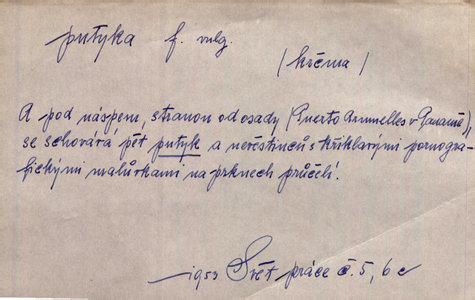 putyka f. vulg.
(krčma)
A pod náspem, stranou od osady (Puerto Armuelles v Panamě),
se schovává pět putyk a nevěstinců s křiklavými pornogra-
fickými malůvkami na prknech průčelí.
1953 Svět práce č. 5, 6 c